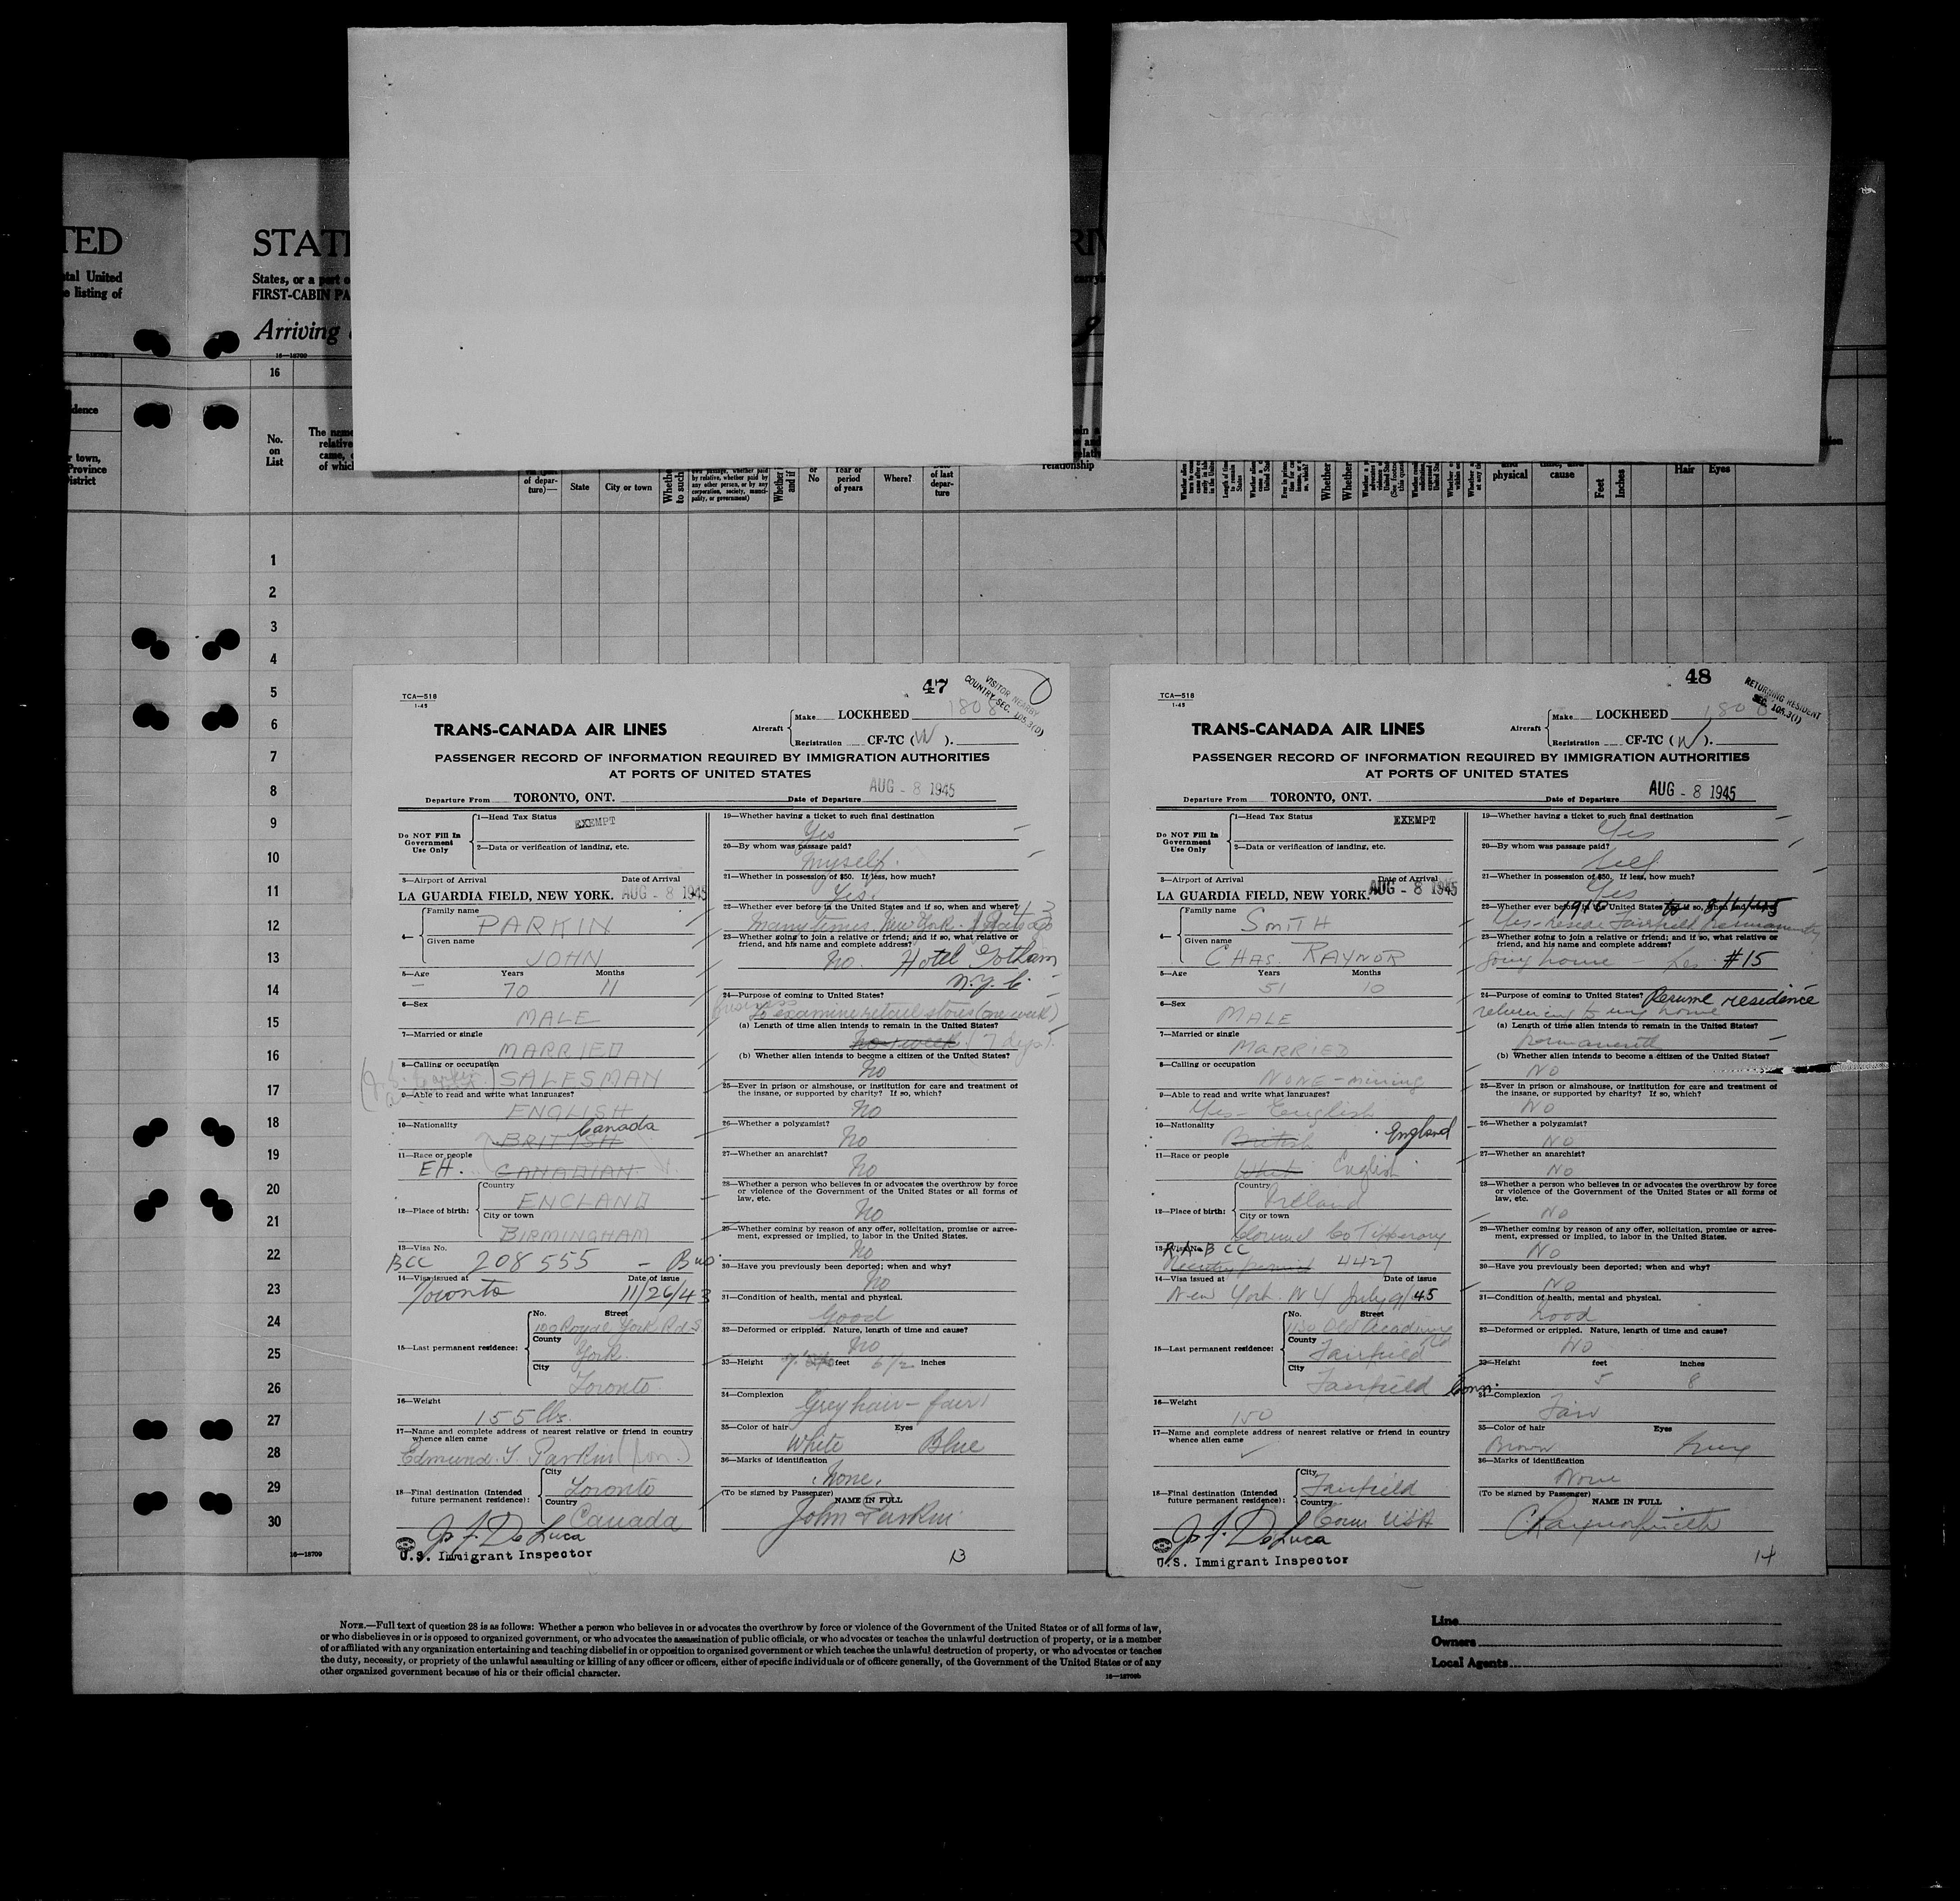 TED
STATE
tal United
States, or a part o
e listing of
FIRST-CABIN PA
Arriving
16—18709
16
dence
r town,
Province
District
No.
on
List
The name
relative
came,
of which
of depar-
ture)—
State
City or town
No
Year or
period
of years
Where?
of last
depar-
ture
relationship
physical
cause
Feet
Inches
Hair
Eyes
1
2
3
4
5
6
7
8
9
10
11
12
13
14
15
16
17
18
19
20
21
22
23
24
25
26
27
28
29
30
16—18709
TCA—518
1-45
47
VISITOR NEARBY
COUNTRY-SEC. 105.3(0)
1808
TRANS-CANADA AIR LINES
Aircraft
Make LOCKHEED
Registration CF-TC (W).
PASSENGER RECORD OF INFORMATION REQUIRED BY IMMIGRATION AUTHORITIES
AT PORTS OF UNITED STATES
Departure From TORONTO, ONT. Date of Departure AUG - 8 1945
Do NOT Fill In
Government
Use Only
1—Head Tax Status EXEMPT
2—Data or verification of landing, etc.
3—Airport of Arrival Date of Arrival
LA GUARDIA FIELD, NEW YORK. AUG - 8 1945
4—
Family name
PARKIN
Given name
JOHN
5—Age Years Months
70 11
6—Sex
MALE
7—Married or single
MARRIED
8—Calling or occupation
SALESMAN
9—Able to read and write what languages?
ENGLISH
10—Nationality Canada
BRITISH
11—Race or people
EH. CANADIAN
12—Place of birth:
Country
ENGLAND
City or town
BIRMINGHAM
13—Visa No.
BCC 208555 — Bus
14—Visa issued at Date of issue
Toronto 11/26/43
15—Last permanent residence:
No. Street
100 Royal York Rd. S
County
York.
City
Toronto.
16—Weight
155 lbs.
17—Name and complete address of nearest relative or friend in country
whence alien came
Edmund. T. Parkin (son.)
18—Final destination (Intended
future permanent residence):
City
Toronto
Country
Canada
J. F. DeLuca
U.S. Immigrant Inspector
19—Whether having a ticket to such final destination
Yes
20—By whom was passage paid?
Myself.
21—Whether in possession of $50. If less, how much?
Yes.
22—Whether ever before in the United States and if so, when and where?
Many times. New York.
23—Whether going to join a relative or friend; and if so, what relative or
friend, and his name and complete address?
No. Hotel Gotham
N.Y.C.
24—Purpose of coming to United States?
business
to examine retail stores (one week)
(a) Length of time alien intends to remain in the United States?
(7 days).
(b) Whether alien intends to become a citizen of the United States?
No
25—Ever in prison or almshouse, or institution for care and treatment of
the insane, or supported by charity? If so, which?
No
26—Whether a polygamist?
No
27—Whether an anarchist?
No
28—Whether a person who believes in or advocates the overthrow by force
or violence of the Government of the United States or all forms of
law, etc.
No
29—Whether coming by reason of any offer, solicitation, promise or agree-
ment, expressed or implied, to labor in the United States.
No
30—Have you previously been deported; when and why?
No
31—Condition of health, mental and physical.
Good
32—Deformed or crippled. Nature, length of time and cause?
No
33—Height feet 6½ inches
34—Complexion
Grey hair — fair
35—Color of hair Eyes
White Blue
36—Marks of identification
None.
(To be signed by Passenger)
NAME IN FULL
John Parkin
13
TCA—518
1-45
48
RETURNING RESIDENT
SEC. 105.3(1)
1808
TRANS-CANADA AIR LINES
Aircraft
Make LOCKHEED
Registration CF-TC (W).
PASSENGER RECORD OF INFORMATION REQUIRED BY IMMIGRATION AUTHORITIES
AT PORTS OF UNITED STATES
Departure From TORONTO, ONT. Date of Departure AUG - 8 1945
Do NOT Fill In
Government
Use Only
1—Head Tax Status EXEMPT
2—Data or verification of landing, etc.
3—Airport of Arrival Date of Arrival
LA GUARDIA FIELD, NEW YORK. AUG - 8 1945
4—
Family name
SMITH
Given name
CHAS. RAYNOR
5—Age Years Months
51 10
6—Sex
MALE
7—Married or single
MARRIED
8—Calling or occupation
NONE — mining
9—Able to read and write what languages?
Yes — English
10—Nationality
British England
11—Race or people
White English
12—Place of birth:
Country
Ireland
City or town
Clonmel Co Tipperary
13—Visa No.
R.A-BCC
4427
14—Visa issued at Date of issue
New York. N Y July 9/45
15—Last permanent residence:
No. Street
1130 Old Academy Rd
County
Fairfield
City
Fairfield Conn.
16—Weight
150
17—Name and complete address of nearest relative or friend in country
whence alien came
18—Final destination (Intended
future permanent residence):
City
Fairfield
Country
Conn USA
J. F. DeLuca
U.S. Immigrant Inspector
19—Whether having a ticket to such final destination
Yes
20—By whom was passage paid?
Self
21—Whether in possession of $50. If less, how much?
Yes
22—Whether ever before in the United States and if so, when and where?
1916 to 8/6/45
Yes — Reside Fairfield Permanently
23—Whether going to join a relative or friend; and if so, what relative or
friend, and his name and complete address?
going home #15
24—Purpose of coming to United States? Resume residence
returning to my home
(a) Length of time alien intends to remain in the United States?
Permanently
(b) Whether alien intends to become a citizen of the United States?
NO
25—Ever in prison or almshouse, or institution for care and treatment of
the insane, or supported by charity? If so, which?
NO
26—Whether a polygamist?
NO
27—Whether an anarchist?
NO
28—Whether a person who believes in or advocates the overthrow by force
or violence of the Government of the United States or all forms of
law, etc.
NO
29—Whether coming by reason of any offer, solicitation, promise or agree-
ment, expressed or implied, to labor in the United States.
NO
30—Have you previously been deported; when and why?
NO
31—Condition of health, mental and physical.
Good
32—Deformed or crippled. Nature, length of time and cause?
NO
33—Height feet inches
5 8
34—Complexion
Fair
35—Color of hair Eyes
Brown Grey
36—Marks of identification
None
(To be signed by Passenger)
NAME IN FULL
C Raynor Smith
14
NOTE.—Full text of question 28 is as follows: Whether a person who believes in or advocates the overthrow by force or violence of the Government of the United States or of all forms of law,
or who disbelieves in or is opposed to organized government, or who advocates the assassination of public officials, or who advocates or teaches the unlawful destruction of property, or is a member
of or affiliated with any organization entertaining and teaching disbelief in or opposition to organized government or which teaches the unlawful destruction of property, or who advocates or teaches
the duty, necessity, or propriety of the unlawful assaulting or killing of any officer or officers, either of specific individuals or of officers generally, of the Government of the United States or of any
other organized government because of his or their official character.
Line
Owners
Local Agents